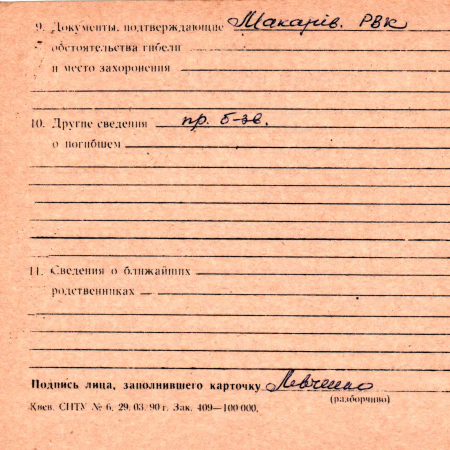 9. Документы, подтверждающие Макарів. РВК
обстоятельства гибели
и место захоронения
10. Другие сведения пр. б-зв.
о погибшем
11. Сведения о ближайших
родственниках
Подпись лица, заполнившего карточку Левченко
(разборчиво)
Киев. СПТУ № 6. 29. 03. 90 г. Зак. 409—100 000.